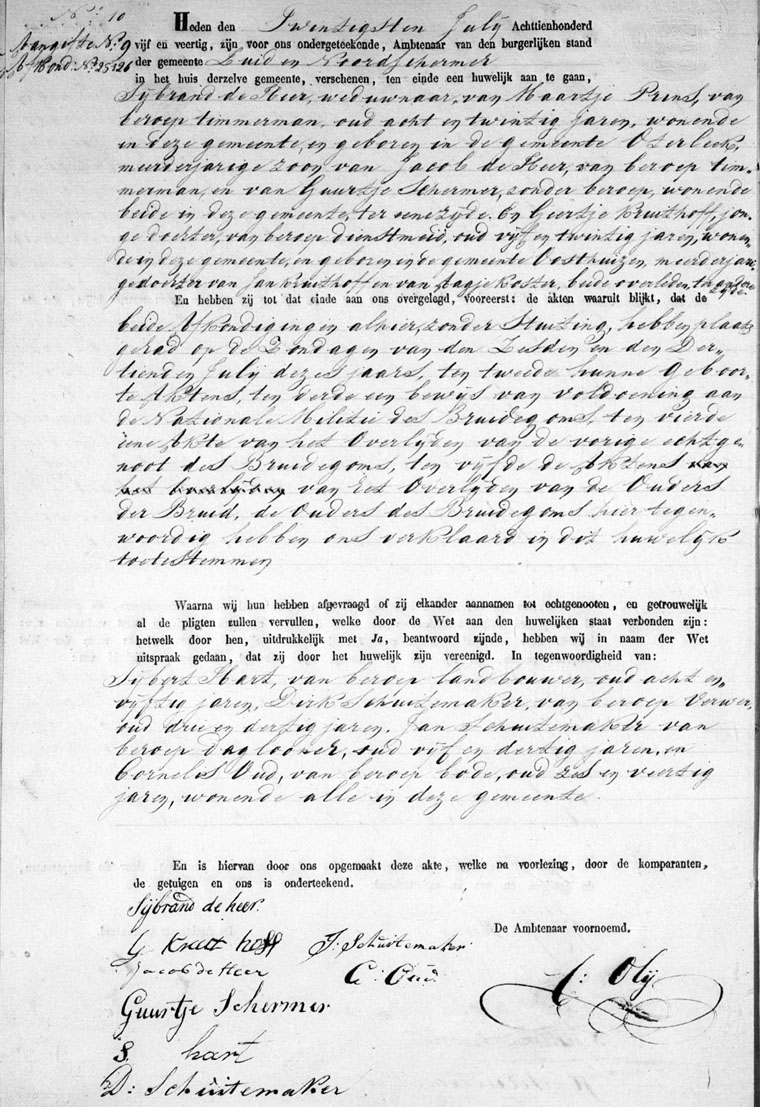 No. 10
Aangifte No. 9
Afkond: No. 25 & 26
Heden den Twintigsten July Achttienhonderd
vijf en veertig, zijn voor ons ondergeteekende, Ambtenaar van den burgerlijken stand
der gemeente Zuid en Noordschermer
in het huis derzelve gemeente, verschenen, ten einde een huwelijk aan te gaan,
Sijbrand de Heer, weduwnaar, van Maartje Prins, van
beroep timmerman, oud acht en twintig jaren, wonende
in deze gemeente, en geboren in de gemeente Oterleek,
meerderjarige zoon van Jacob de Heer, van beroep tim-
merman, en van Guurtje Schermer, zonder beroep, wonende
beide in deze gemeente, ter eene zijde. En Geertje Kruithoff, jon-
ge dochter, van beroep dienstmeid, oud vijf en twintig jaren, wonen-
de in deze gemeente, en geboren in de gemeente Oosthuizen, meerderjari-
ge dochter van Jan Kruithoff en van Aagje Koster, beide overleden, ter andere
zijde.
En hebben zij tot dat einde aan ons overgelegd, vooreerst: de akten waaruit blijkt, dat de
beide Afkondigingen alhier, zonder Stuiting, hebben plaats
gehad op de Zondagen van den Zesden en den Der-
tienden July dezes jaars, ten tweede hunne Geboor-
te Aktens, ten derde een bewijs van voldoening aan
de Nationale Militie des Bruidegoms, ten vierde
eene Akte van het Overlijden van de vorige echtge-
noot des Bruidegoms, ten vijfde de Aktens van
het overlijden van het Overlijden van de Ouders
der Bruid, de Ouders des Bruidegoms hier tegen-
woordig hebben ons verklaard in dit huwelijk
toetestemmen
Waarna wij hun hebben afgevraagd of zij elkander aannamen tot echtgenooten, en getrouwelijk
al de pligten zullen vervullen, welke door de Wet aan den huwelijken staat verbonden zijn:
hetwelk door hen, uitdrukkelijk met Ja, beantwoord zijnde, hebben wij in naam der Wet
uitspraak gedaan, dat zij door het huwelijk zijn vereenigd. In tegenwoordigheid van:
Sijbert Hart, van beroep landbouwer, oud acht en
vijftig jaren, Dirk Schuitemaker, van beroep Verwer,
oud drie en dertig jaren, Jan Schuitemaker van
beroep daglooner, oud vijf en dertig jaren, en
Cornelis Oud, van beroep bode, oud zes en veertig
jaren, wonende alle in deze gemeente.
En is hiervan door ons opgemaakt deze akte, welke na voorlezing, door de komparanten,
de getuigen en ons is onderteekend.
Sijbrand de heer.
De Ambtenaar voornoemd.
G Kruit hoff J: Schuitemaker
Jacob de Heer C: Oud
C: Olij
Guurtje Schermer
S. hart
D: Schuitemaker